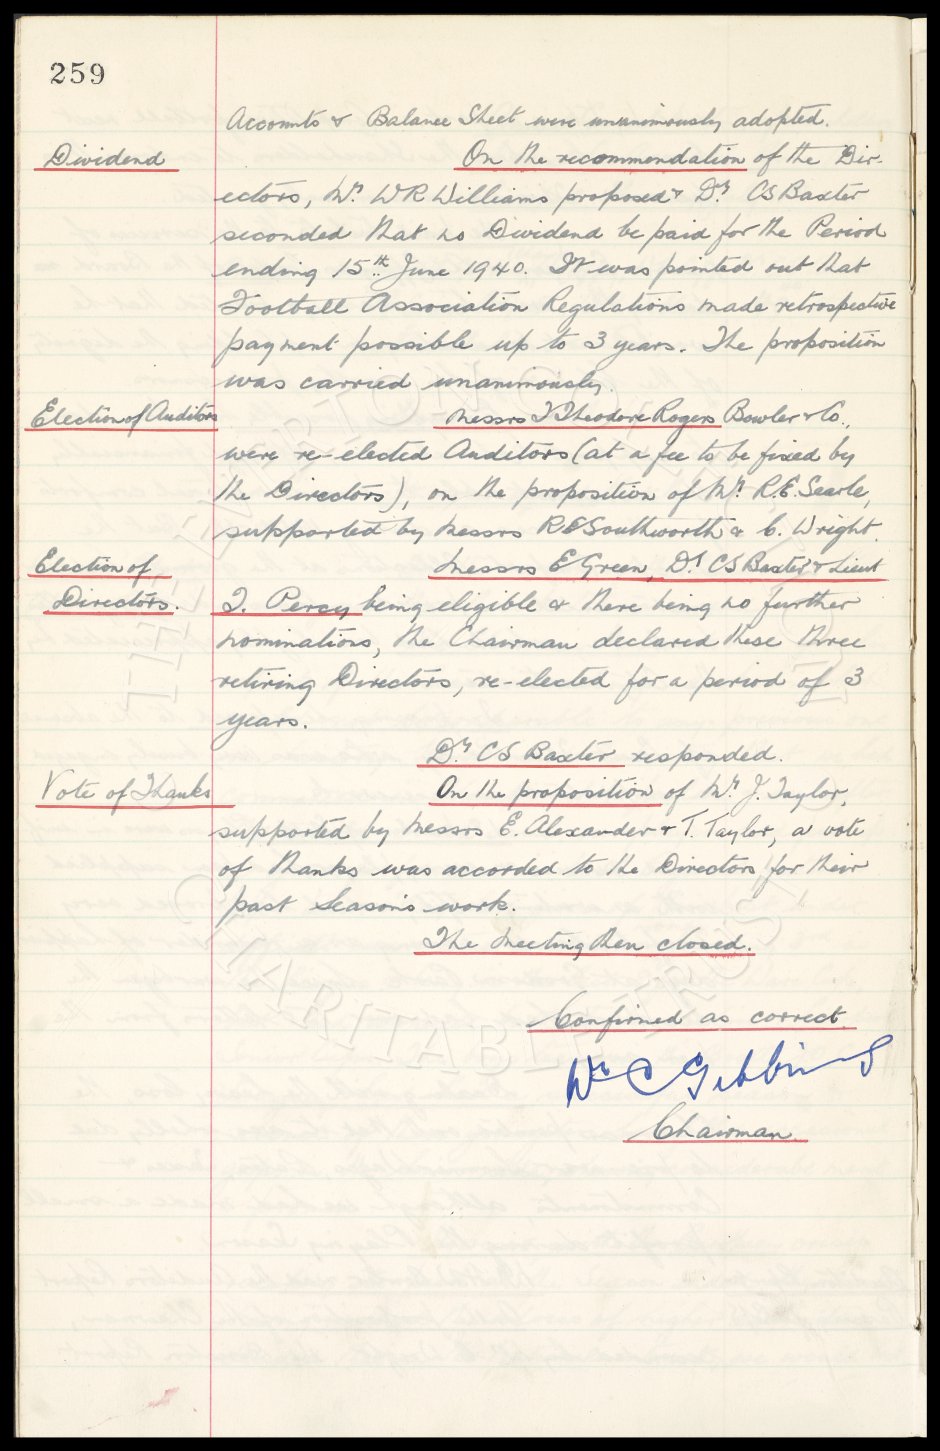 259
Accounts & Balance Sheet were unanimously adopted.
Dividend On the recommendation of the Dir-
ectors, Mr. W R Williams proposed & Dr. CS Baxter
seconded that no Dividend be paid for the Period
ending 15th June 1940. It was pointed out that
Football Association Regulations made retrospective
payment possible up to 3 years. The proposition
was carried unanimously.
Election of Auditors Messrs T Theodore Rogers Bowler & Co.,
were re-elected Auditors (at a fee to be fixed by
the Directors), on the proposition of Mr. R.E. Searle,
supported by Messrs R E Southworth & C. Wright.
Election of Messrs E Green, Dr. CS Baxter & Lieut
Directors. T. Percy being eligible & there being no further
nominations, the Chairman declared these three
retiring Directors, re-elected for a period of 3
years.
Dr. CS Baxter responded.
Vote of Thanks On the proposition of Mr. J. Taylor,
supported by Messrs E. Alexander & T. Taylor, a vote
of thanks was accorded to the Directors for their
past Season's work.
The Meeting then closed.
Confirmed as correct
Wm C Gibbins
Chairman.
THE EVERTON
CHARITABLE TRUST